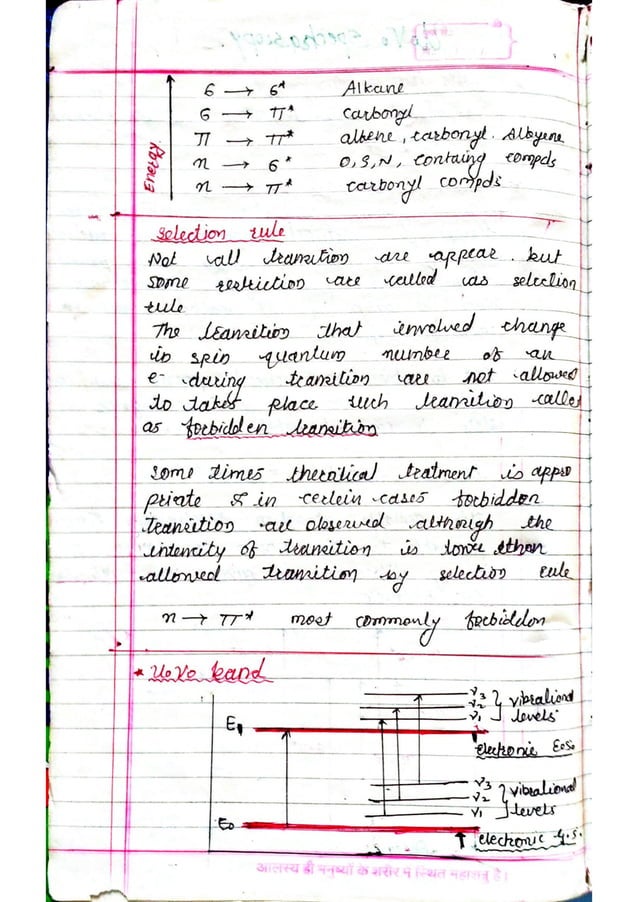 U.V. Spectroscopy
Energy
6 → 6* Alkane
6 → π* carbonyl
π → π* alkene, carbonyl. Alkyene
n → 6* O, S, N, containg compds
n → π* carbonyl compds
selection rule
Not all transition are appear. but
some restriction are called as selection
rule
The transition that involved change
in spin quantum number of an
e- during transition are not allowed
to takes place such transition called
as forbidden transition
Some times theratical treatment is appro
priate & in certein cases forbidden
Transition are observed although the
intencity of transition is lower than
allowed transition by selection rule
n → π* most commonly forbidden
* U.V. band
E1
V3
V2
V1
} vibrational
levels
electronic E.S.
V3
V2
V1
} vibrational
levels
E0
electronic G.S.
आलस्य ही मनुष्यों के शरीर में स्थित महाशत्रु है।